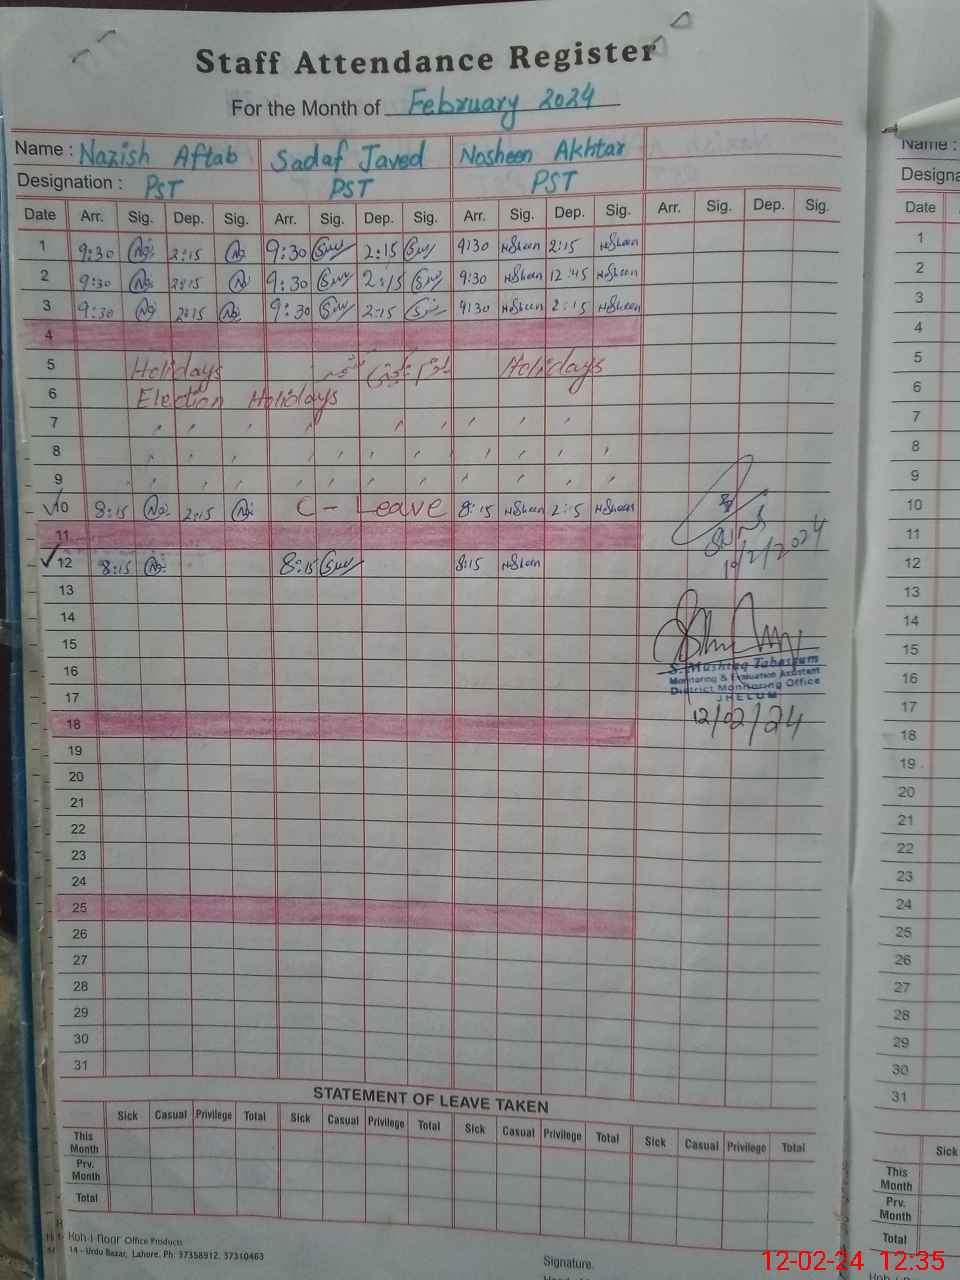 Staff Attendance Register
For the Month of February 2024
Name : Nazish Aftab Sadaf Javed Nosheen Akhtar
Designation : PST PST PST
Date Arr. Sig. Dep. Sig. Arr. Sig. Dep. Sig. Arr. Sig. Dep. Sig. Arr. Sig. Dep. Sig.
1 9:30 2:15 9:30 2:15 9:30 Nsheen 2:15 Nsheen
2 9:30 2:15 9:30 2:15 9:30 Nsheen 12:45 Nsheen
3 9:30 2:15 9:30 2:15 9:30 Nsheen 2:15 Nsheen
4
5 Holidays Holidays
6 Election Holidays
7 , , , , , , , , ,
8 , , , , , , , , , ,
9 , , , , , , , , , ,
10 8:15 2:15 C - Leave 8:15 Nsheen 2:15 Nsheen
11
12 8:15 8:15 8:15 Nsheen
10/2/2024
13
14
15
16
S. Mushtaq Tabassum
Monitoring & Evaluation Assistant
District Monitoring Office
JHELUM
12/02/24
17
18
19
20
21
22
23
24
25
26
27
28
29
30
31
STATEMENT OF LEAVE TAKEN
Sick Casual Privilege Total Sick Casual Privilege Total Sick Casual Privilege Total Sick Casual Privilege Total
This Month
Prv. Month
Total
Koh-i-noor Office Products
14 - Urdu Bazar, Lahore. Ph: 37358912, 37310463
Signature.
Name :
Designa
Date
1
2
3
4
5
6
7
8
9
10
11
12
13
14
15
16
17
18
19
20
21
22
23
24
25
26
27
28
29
30
31
Sick
This Month
Prv. Month
Total
12-02-24 12:35